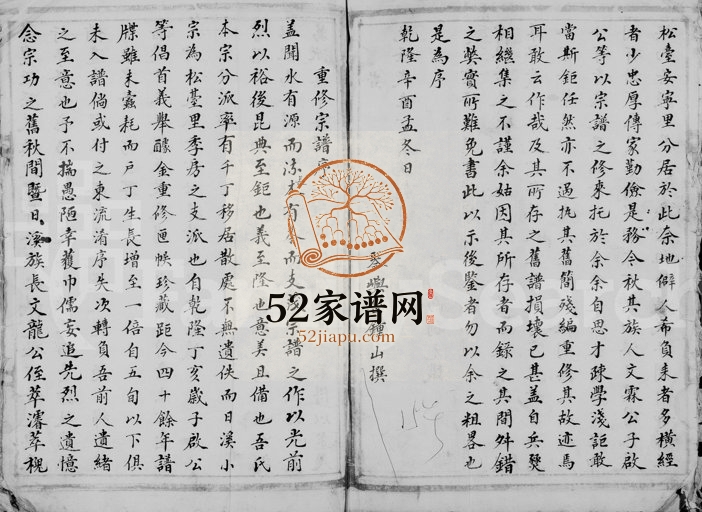 松臺安寧里分居於此余地僻人希負耒者多橫經
者少忠厚傳家勤儉是務今秋其族人文霖公子啟
公等以宗譜之修來托於余余自思才疎學淺詎敢
當斯鉅任然亦不過执其舊簡殘編重修其故迹焉
耳敢云作哉及其所存之舊譜損壞已甚盖自兵燹
相繼集之不謹余姑因其所存者而錄之其間舛錯
之獘實所難免書此以示後鑒者勿以余之粗畧也
是為序
乾隆辛酉孟冬日
山撰
重修宗譜序
盖聞水有源而流 有 而支 宗譜之作以光前
烈以裕後昆典至鉅也義至隆也意美且備也吾氏
本宗分派率有千丁移居散處不無遺佚而日溪小
宗為松臺里季房之支派也自乾隆丁亥歲子啟公
等倡首義舉醵金重修匣帙珍藏距今四十餘年譜
牒雖未蠹耗而戶丁生長增至一倍自五旬以下俱
未入譜倘或付之東流淆序失次轉負吾前人遺緒
之至意也予不揣愚陋幸獲巾儒妄追先烈之遺憶
念宗功之舊秋間暨日溪族長文龍公侄萃濬萃槐
52家谱网
52jiapu.com